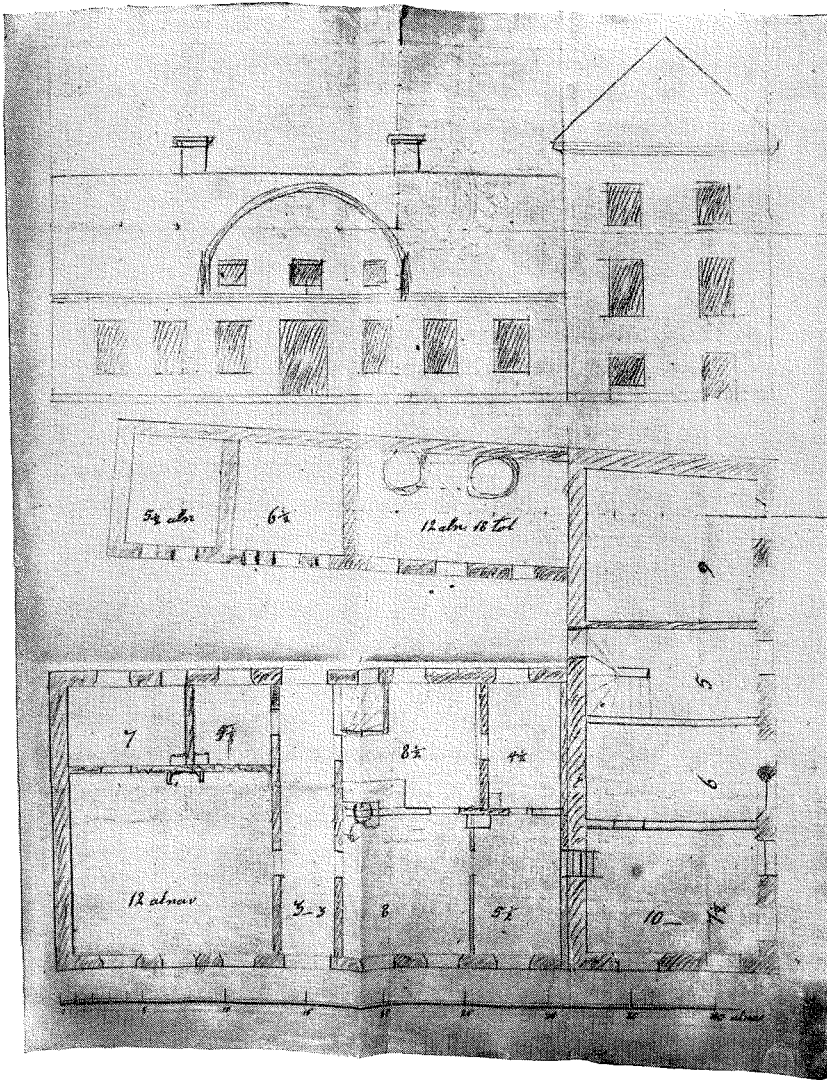 5½ aln
6½
12 aln. 18 tol
9
5
7
8½
4½
6
12 alnar
3-3
8
5½
10
5
10
15
20
25
30
35
40 alnar